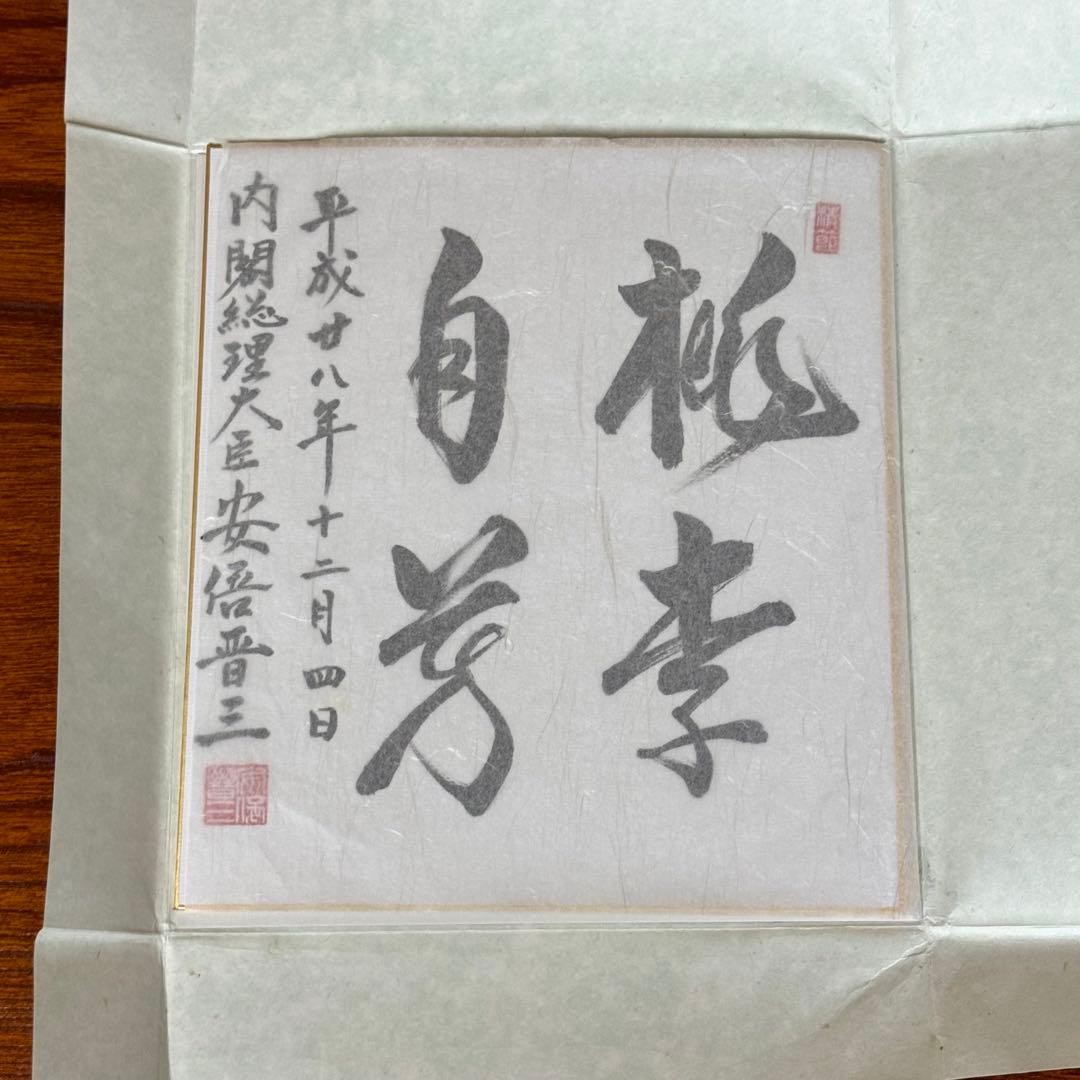 桃李
自芳
平成廿八年十二月四日
内閣総理大臣安倍晋三